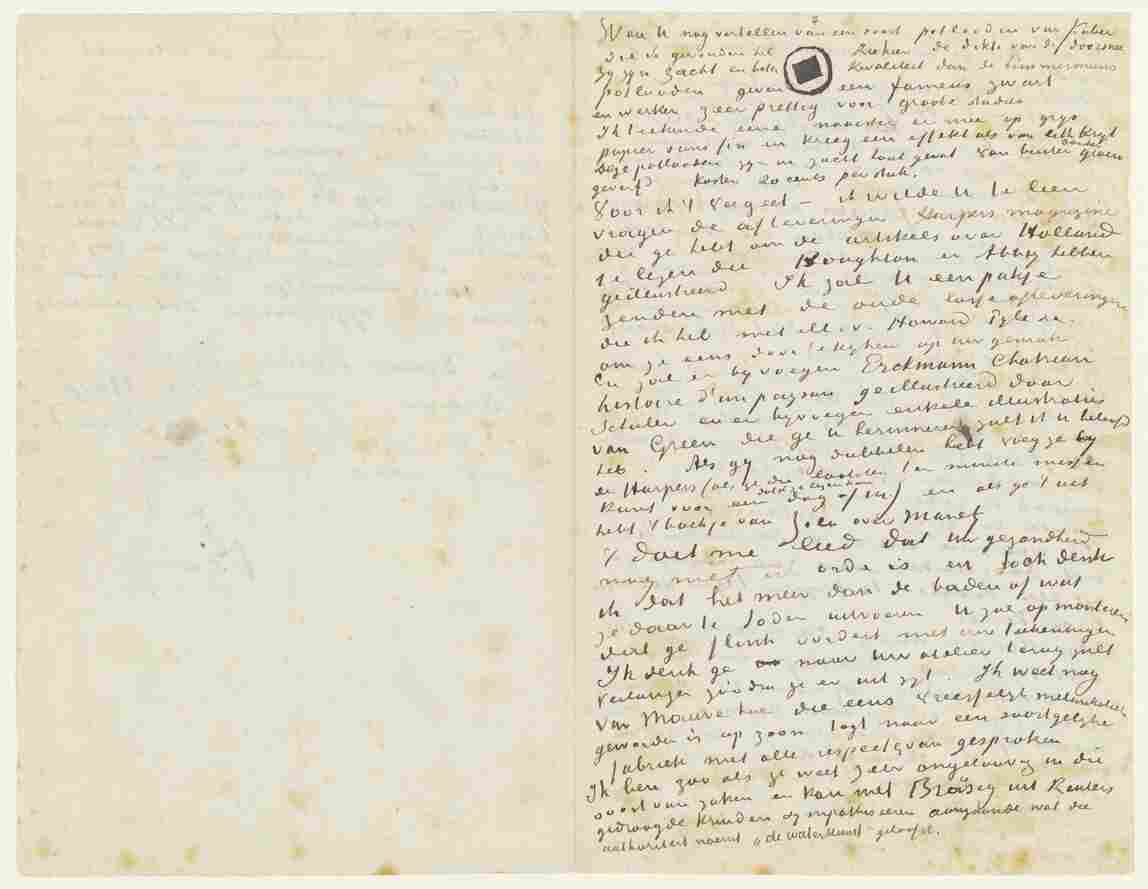 Wou U nog vertellen van een soort potlooden van Faber
die ik gevonden heb Ziehier de dikte van de doorsnee
Zy zyn zacht en beter Kwaliteit dan de timmermans
potlooden geven een fameus zwart
en werken zeer prettig voor groote studies
Ik teekende eene naaister er mee op grys
papier sans fin en kreeg een effekt als van lith. Kryt
deze potlooden zyn in zacht hout gevat van buiten donker groen
geverfd Kosten 20 cents per stuk.
Voor ik 't vergeet – ik wilde U te leen
vragen de afleveringen Harpers magazine
die ge hebt om de artikels over Holland
te lezen die Boughton en Abbey hebben
geillustreerd Ik zal U een pakje
zenden met de oude losse afleveringen
die ik heb met ill. v. Howard Pyle
om ze eens door te kyken op uw gemak
En zal er byvoegen Erckmann Chatrian
histoire d'un paysan geillustreerd door
Schuler en er byvoegen enkele illustraties
van Green die ge U herinneren zult ik U beloofd
heb. Als gy nog dubbelen hebt voeg ze by
de Harpers (als ge die ten minste missen
kunt voor een dag of ) en als ge 't uit
hebt 't boekje van Zola over Manet
't doet me leed dat uw gezondheid
nog niet in orde is en toch denk
ik dat het meer dan de baden of wat
ze daar te Soden uitvoeren U zal opmonteren
dat ge flink vordert met uw teekeningen
Ik denk ge naar uw atelier terug zult
verlangen zoodra ge er uit zyt. Ik weet nog
van Mauve hoe die eens vreesselyk melankoliek
geworden is op zoon togt naar een soortgelyke
fabriek met alle respect er van gesproken
Ik ben zoo als ge weet zeer ongeloovig in die
soort van zaken en kan met Bräsig uit Reuters
gedroogde Kruiden sympathiseeren aangaande wat die
authoriteit noemt „de waterkunst" geloof ik.